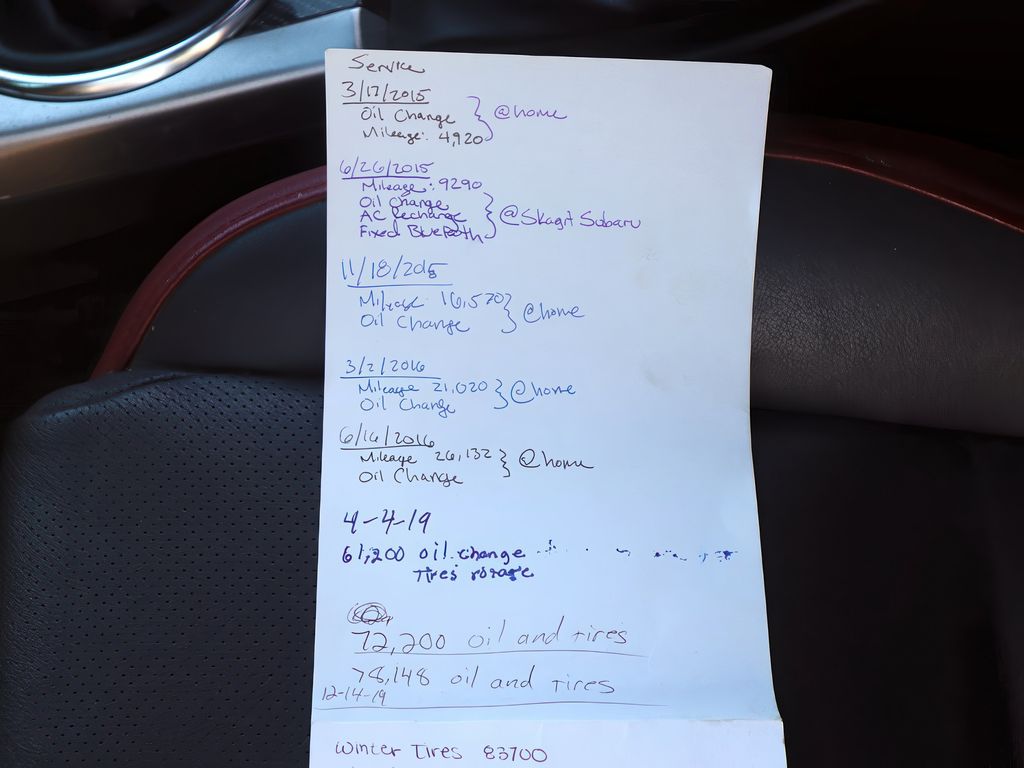 Service
3/17/2015
Oil Change
Mileage: 4,920
@home
6/26/2015
Mileage: 9290
Oil Change
AC Recharge
Fixed Bluetooth
@Skagit Subaru
11/18/2015
Mileage 16,570
Oil Change
@home
3/2/2016
Mileage 21,020
Oil Change
@home
6/16/2016
Mileage 26,132
Oil Change
@home
4-4-19
61,200 oil change
Tires rotate
72,200 oil and tires
78,148 oil and tires
12-14-19
Winter Tires 83700